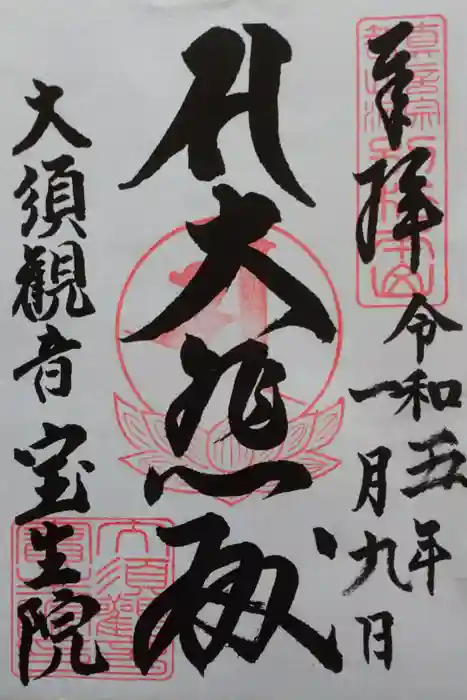 奉拝
令和五年
一月九日
大悲殿
大須観音
宝生院